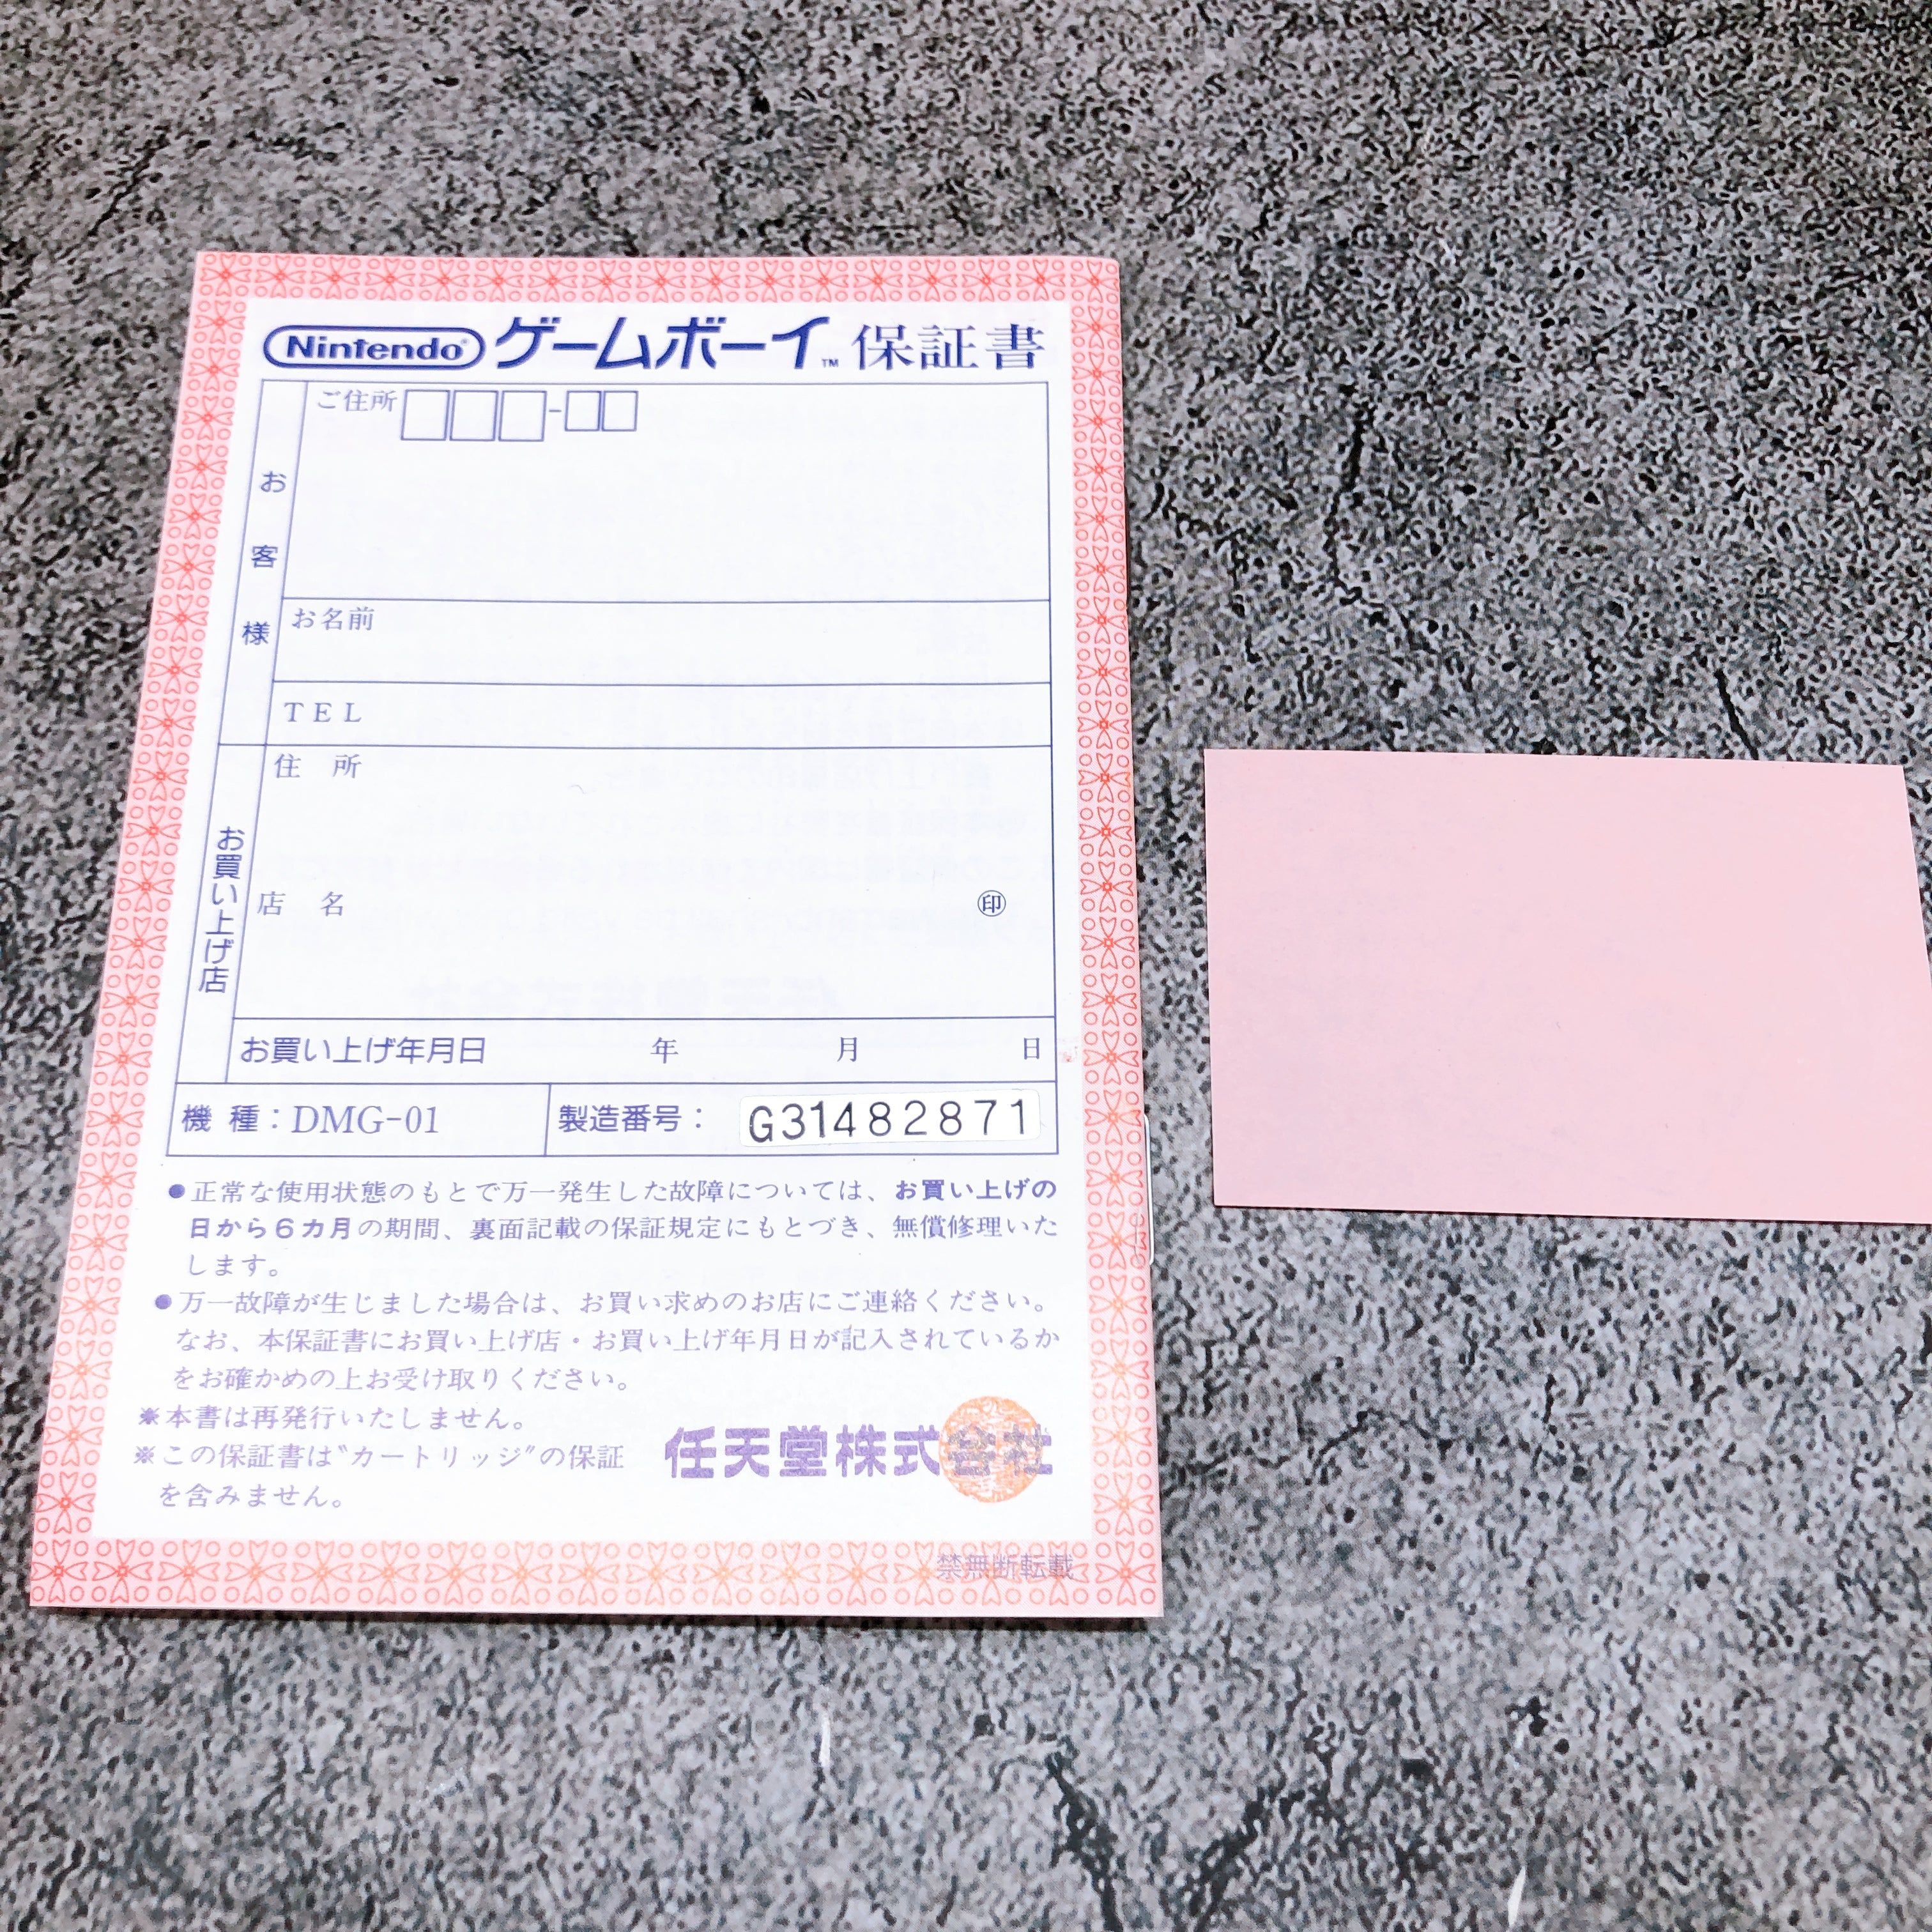 Nintendo® ゲームボーイ™ 保証書
お客様
ご住所 -
お名前
TEL
お買い上げ店
住 所
店 名 ㊞
お買い上げ年月日 年 月 日
機 種：DMG-01 製造番号： G31482871
●正常な使用状態のもとで万一発生した故障については、お買い上げの
日から6カ月の期間、裏面記載の保証規定にもとづき、無償修理いた
します。
●万一故障が生じました場合は、お買い求めのお店にご連絡ください。
なお、本保証書にお買い上げ店・お買い上げ年月日が記入されているか
をお確かめの上お受け取りください。
※本書は再発行いたしません。
※この保証書は〝カートリッジ〟の保証
を含みません。
任天堂株式会社
禁無断転載